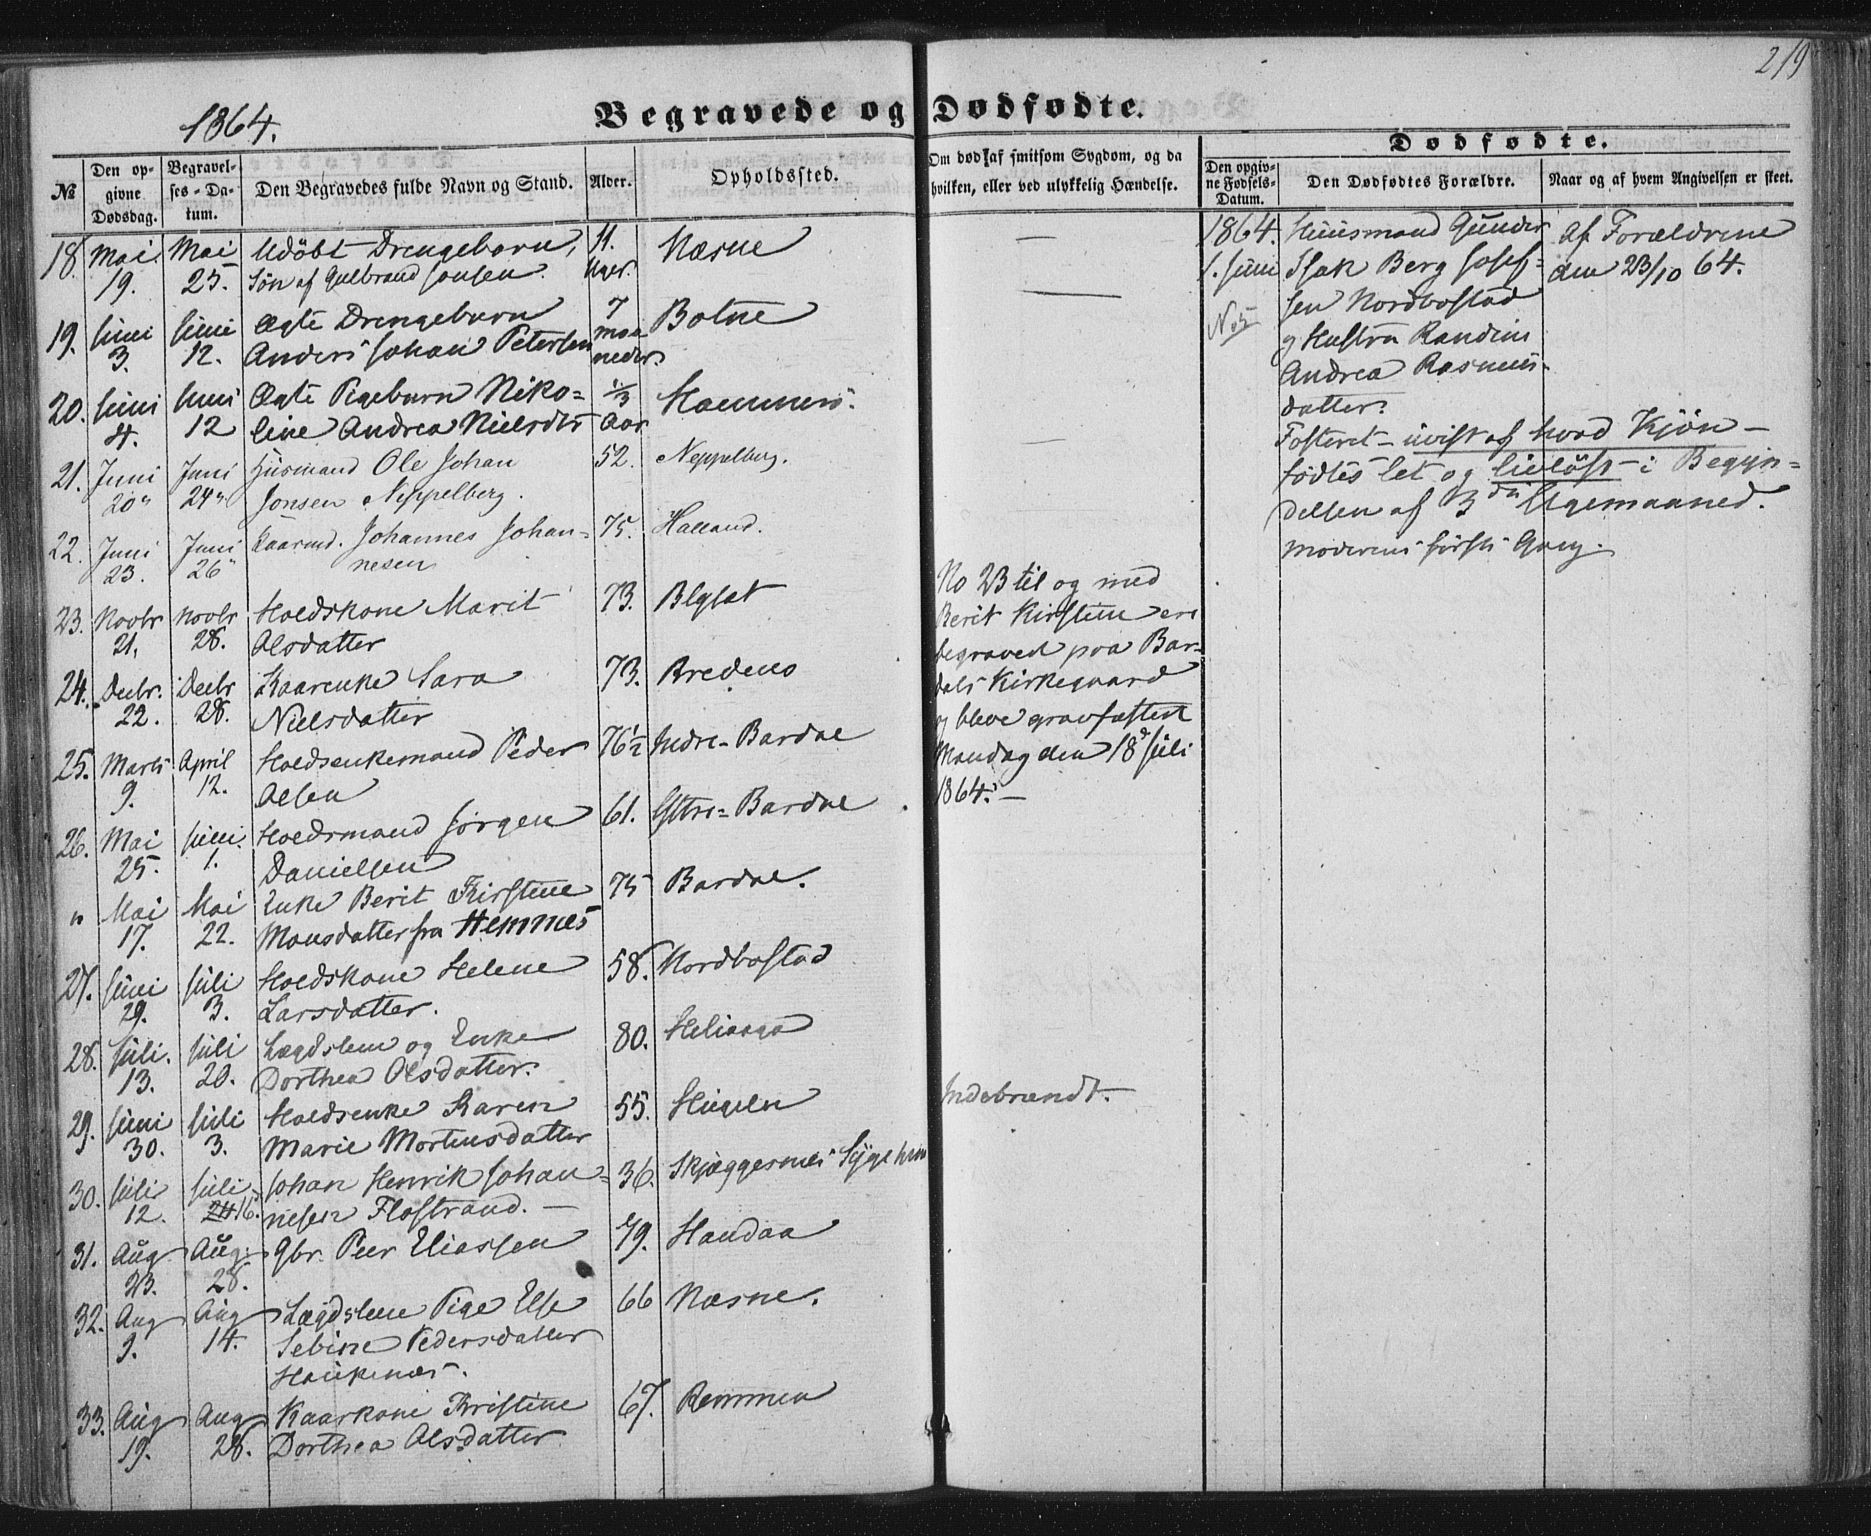 219
1864.
Begravede og Dødfødte.
Dødfødte.
№
Den opgivne Dødsdag.
Begravelses-Datum.
Den Begravedes fulde Navn og Stand.
Alder.
Opholdssted.
Om død af smitsom Sygdom, og da hvilken, eller ved ulykkelig Hændelse.
Den opgivne Fødsels-Datum.
Den Dødfødtes Forældre.
Naar og af hvem Angivelsen er skeet.
18. Mai 19. Mai 25. Udøbt Drengebarn, 11. Uger. Næsne —
Søn af Gulbrand Jonsen.
19. Juni 3. Juni 12. Ægte Drengebarn 7 Maaneder. Botne —
Anders Johan Petersen
20. Juni 4. Juni 12 Ægte Pigebarn Niko=
line Andrea Nielsdtr 1/3 Aar
21. Juni 20" Juni 24" Husmand Ole Johan 52. Neppelberg.
Jonsen Neppelberg.
22. Juni 23. Juni 26" Kaarmd. Johannes Johan= 75. Halland.
nesen
23. Novbr 21. Novbr 28. Holdskone Marit 73.
Olsdatter
24. Decbr. 22. Decbr 28. Kaarenke Sara 73. Bredenes
Nielsdatter
25. Marts 9. April 12. Holdsenkemand Peder 76½ Indre-Bardal
Olsen
26. Mai 25. Juni 1. Holdsmand Jørgen 61. Yttre-Bardal
Danielsen
" Mai 17. Mai 22. Enke Berit Kirstine 75 Bardal.
Monsdatter fra Hemnes
27. Juni 29. Juli 3. Holdskone Helene 58. Nordbostad
Larsdatter.
28. Juli. 13. Juli 20. Lægdslem og Enke 80.
Dorthea Olsdatter.
29. Juni 30. Juli 3. Holdsenke Karen 55. Hugeln Indebrændt.
Marie Mortensdatter
30. Juli 12. Juli 24 16. Johan Henrik Johan= 36. Skjæggesnes Sygehuus
nesen Flostrand. —
31. Aug 23. Aug. 28. Gbr. Peer Eliassen 79. Handaa
32. Aug 9. Aug 14. Lægdslem Pige Else 66 Næsne.
Sebine Pedersdatter
33. Aug 19. Aug 28. Kaarkone Kristine 67. Remmen
Dorthea Olsdatter
No 23 til og med
Berit Kirstine ere
begravet paa Bar=
dals Kirkegaard
og bleve gravfæstet
Mandag den 18d Juli
1864. —
1864.
1. Juni
No 5
Huusmand Gunder
Isak Berg Josef=
sen Nordbostad
og Hustru Randine
Andrea Rasmus-
datter.
Fosteret – uvist af hvad Kjøn –
fødtes let og livløst – i Begyn=
delsen af 3die Ugemaaned.
Moderens første Gang.
Af Forældrene
den 23/10 64.